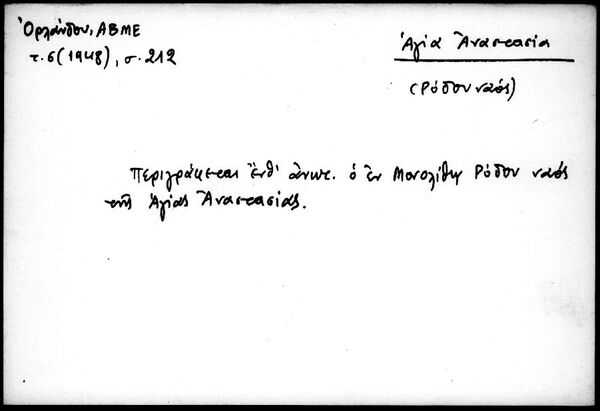 Ὀρλάνδου, ΑΒΜΕ
τ. 6 (1948), σ. 212
Ἁγία Ἀναστασία
(Ῥόδου ναός)
Περιγράφεται ἔνθ' ἄνωτ. ὁ ἐν Μονολίθῳ Ῥόδου ναός
τῆς Ἁγίας Ἀναστασίας.